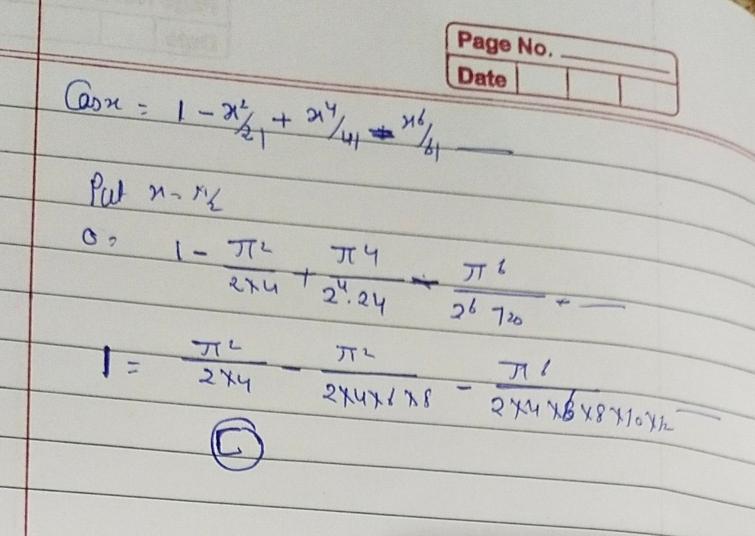 Page No.
Date
Cosx = 1 - x²/2! + x⁴/4! - x⁶/6! —
Put x = π/2
0 = 1 - π²/2×4 + π4/2⁴·24 - π⁶/2⁶ 720 + —
1 = π²/2×4 - π²/2×4×6×8 - π⁶/2×4×6×8×10×12 —
C